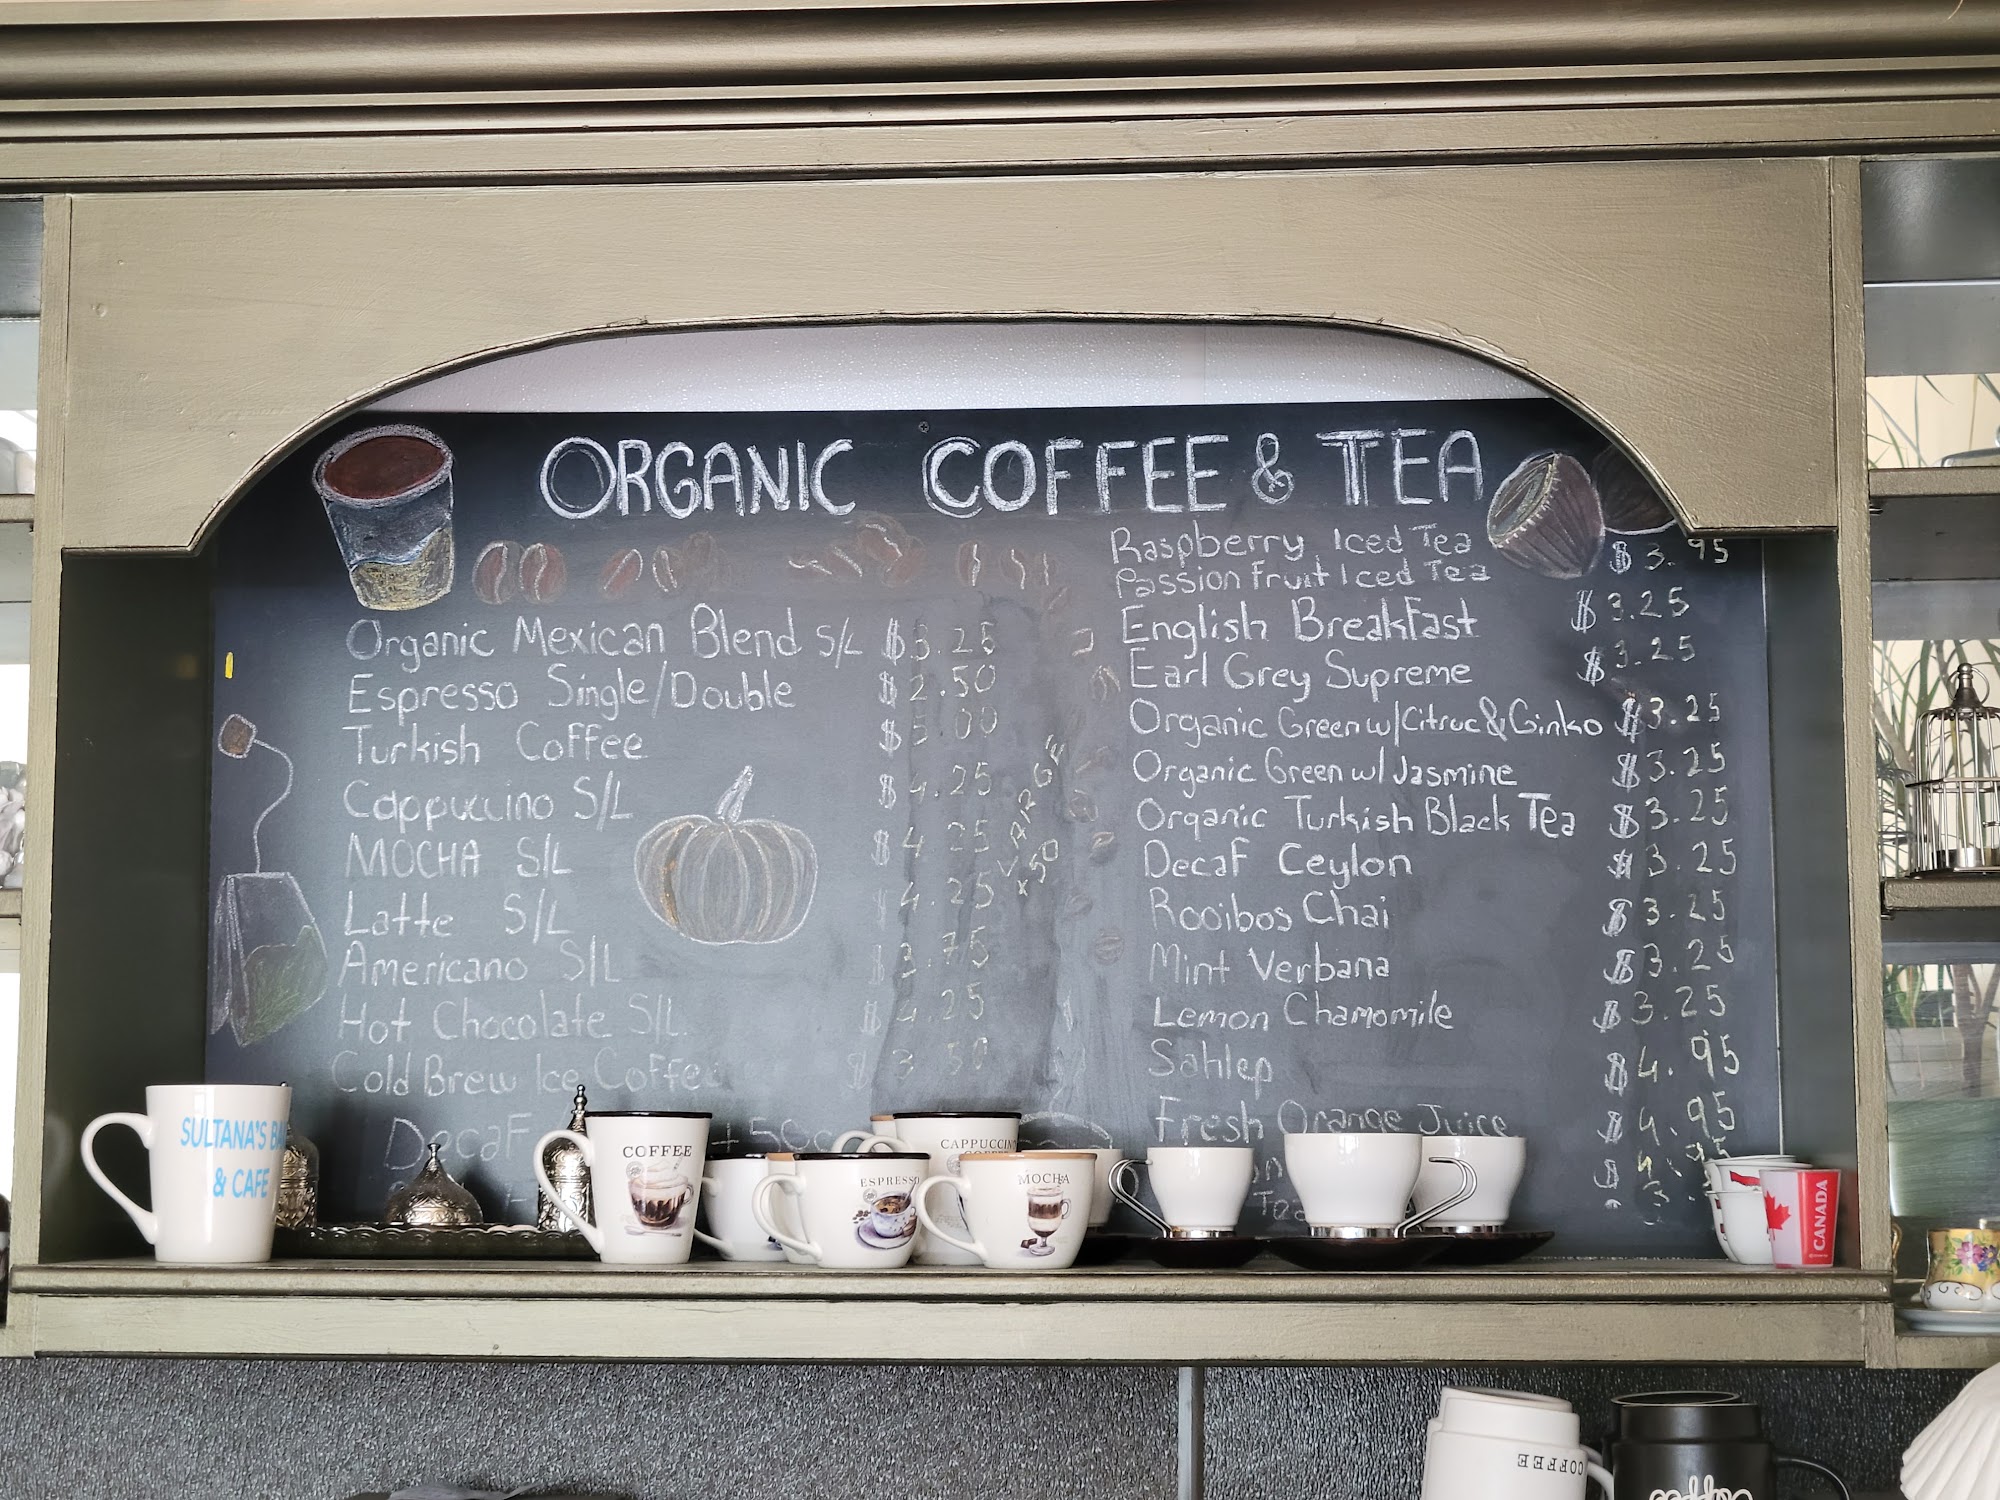 ORGANIC COFFEE & TEA
Organic Mexican Blend S/L $3.25
Espresso Single/Double $2.50
Turkish Coffee $5.00
Cappuccino S/L $4.25
MOCHA S/L $4.25
Latte S/L $4.25
Americano S/L $3.75
Hot Chocolate S/L. $4.25
Cold Brew Ice Coffee $3.50
Decaf +50
LARGE
+50
Raspberry Iced Tea $3.95
Passion Fruit Iced Tea
English Breakfast $3.25
Earl Grey Supreme $3.25
Organic Green w/Citruc&Ginko $3.25
Organic Green w/ Jasmine $3.25
Organic Turkish Black Tea $3.25
Decaf Ceylon $3.25
Rooibos Chai $3.25
Mint Verbana $3.25
Lemon Chamomile $3.25
Sahlep $4.95
Fresh Orange Juice $4.95
$4.95
Tea
SULTANA'S
& CAFE
COFFEE
CAPPUCCINO
COFFEE
ESPRESSO
MOCHA
CANADA
COFFEE
coffee